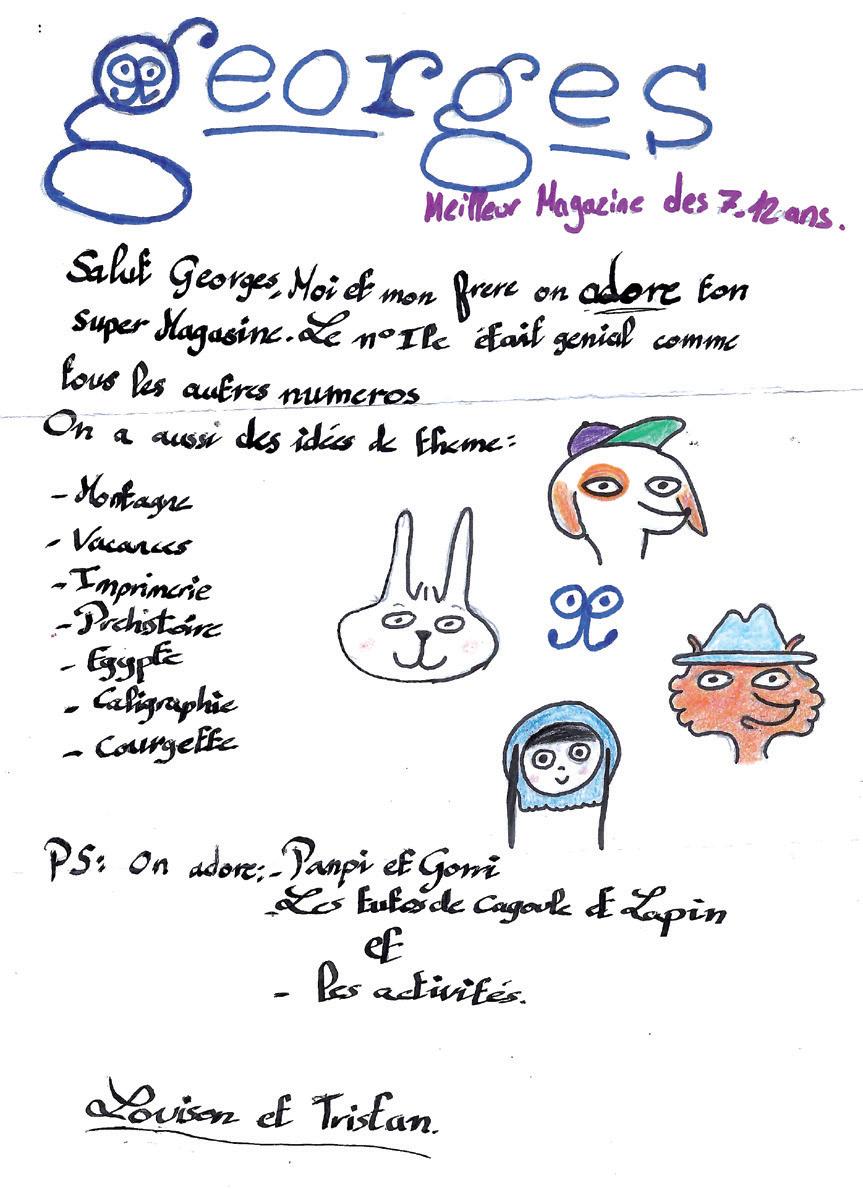 georges
Meilleur Magazine des 7.12 ans.
Salut Georges, Moi et mon frere on adore ton
super Magasine. Le n° Ile était genial comme
tous les autres numeros
On a aussi des idées de theme:
- Montagne
- Vacances
- Imprimerie
- Prehistoire
- Egypte
- Caligraphie
- Courgette
PS: On adore:- Panpi et Gorri
- Les tutos de Cagoule et Lapin
et
- les activités.
Louison et Tristan.